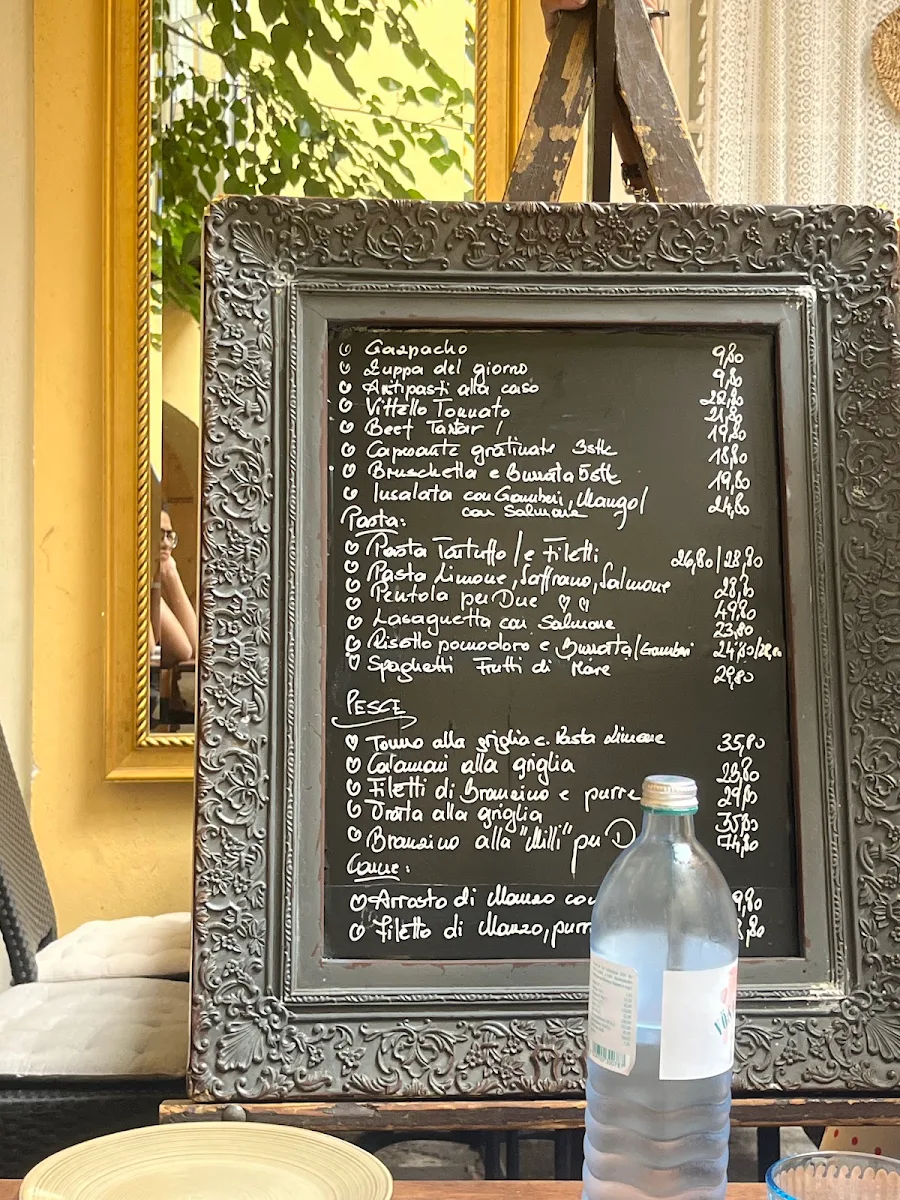 Gazpacho 9,80
Zuppa del giorno 9,80
Antipasti alla casa 22,80
Vittello Tonnato 21,80
Beef Tartar ! 19,80
Capesante gratinate 3stk 18,80
Bruschetta e Burrata 5stk 19,80
Insalata con Gamberi, Mango/ 24,80
con Salmone
Pasta:
Pasta Tartuffo / e Filetti 26,80 / 28,80
Pasta Limone, Saffrano, Salmone 28,80
Pentola per Due 49,80
Lasagnetta con Salmone 23,80
Risotto pomodoro e Burrata/Gamberi 24,80/28,80
Spaghetti Frutti di Mare 29,80
PESCE
Tonno alla griglia c. Pasta Limone 35,80
Calamari alla griglia 29,80
Filetti di Branzino e purre 29,80
Orata alla griglia 35,80
Branzino alla "Milli" per D 74,80
Carne:
Arrosto di Manzo con 9,80
Filetto di Manzo, purr ,80
VÖS